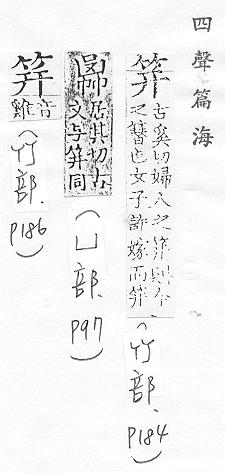 四聲篇海
笄 古奚切婦人之笄則今
之簪也女子許嫁而笄
(竹部、P184)
居其切古
文与笄同
(凵部、P97)
笄 音雞
(竹部、P186)